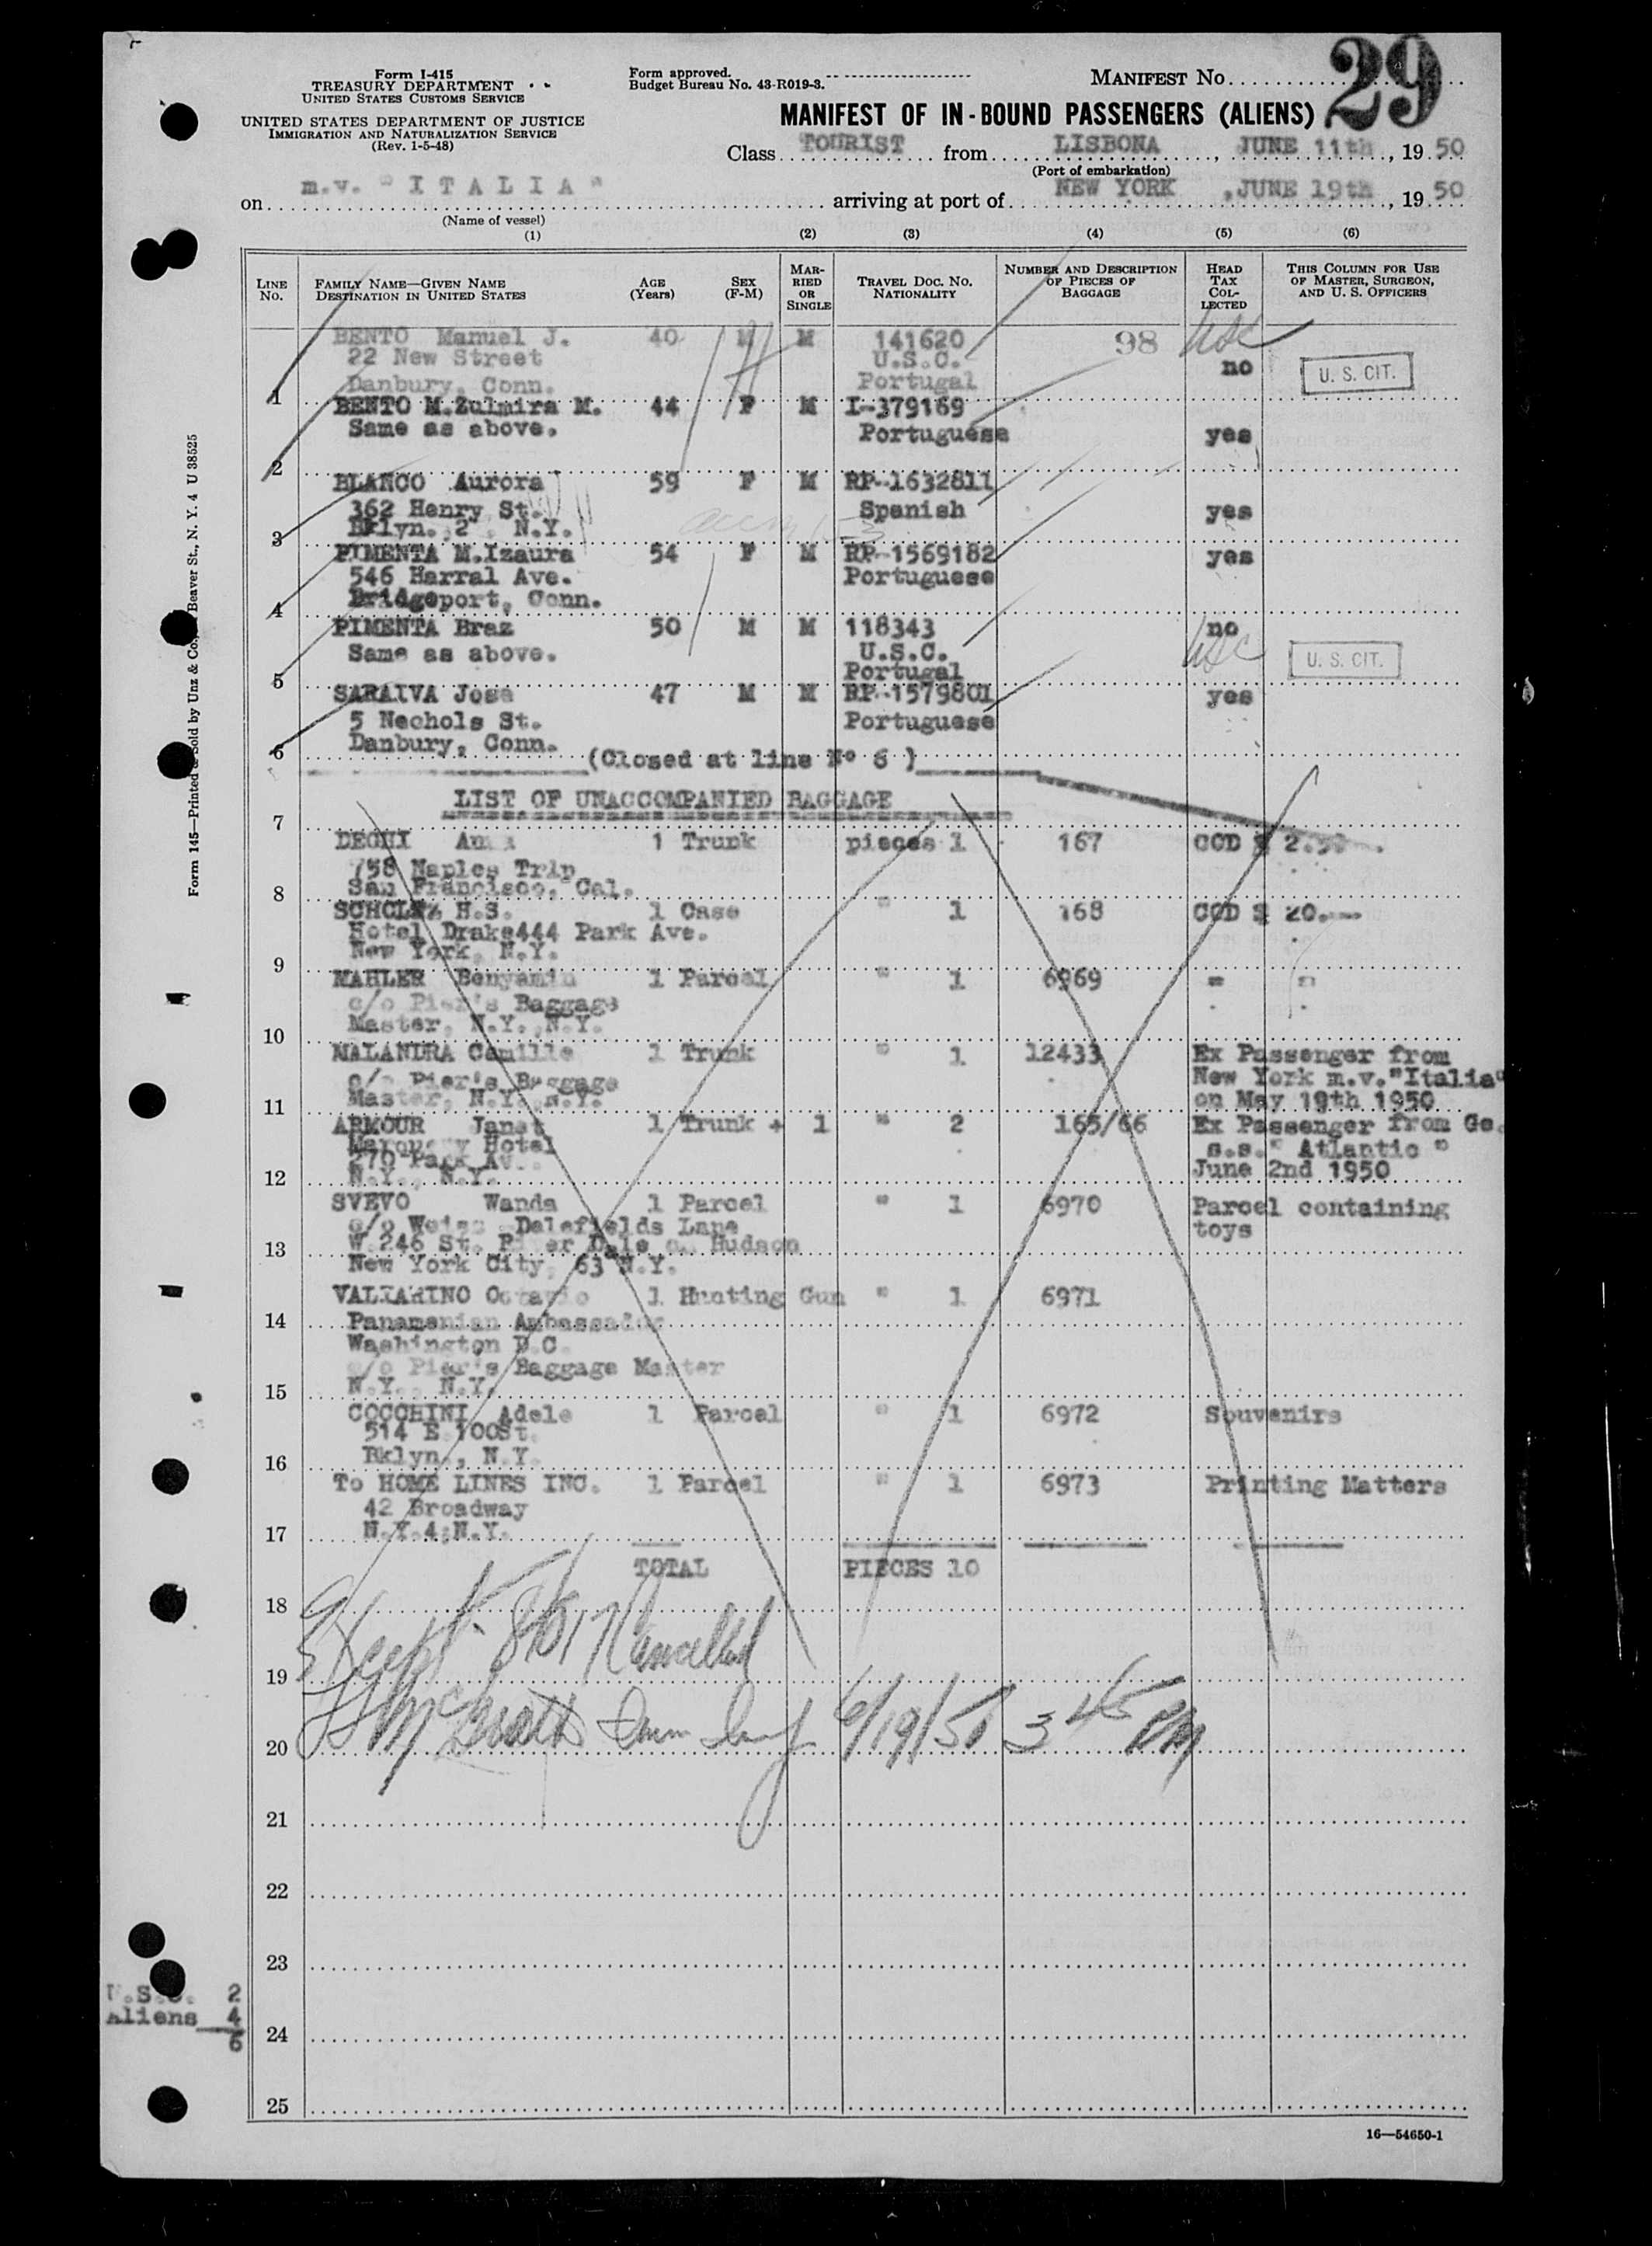 Form I-415
TREASURY DEPARTMENT
UNITED STATES CUSTOMS SERVICE
UNITED STATES DEPARTMENT OF JUSTICE
IMMIGRATION AND NATURALIZATION SERVICE
(Rev. 1-5-48)
Form approved.
Budget Bureau No. 43-R019-3.
MANIFEST No. 29
MANIFEST OF IN-BOUND PASSENGERS (ALIENS)
Class TOURIST from LISBONA, JUNE 11th, 1950
(Port of embarkation)
on m.v. "ITALIA" arriving at port of NEW YORK, JUNE 19th, 1950
(Name of vessel)
(1) (2) (3) (4) (5) (6)
LINE No. FAMILY NAME—GIVEN NAME DESTINATION IN UNITED STATES AGE (Years) SEX (F-M) MARRIED OR SINGLE TRAVEL DOC. NO. NATIONALITY NUMBER AND DESCRIPTION OF PIECES OF BAGGAGE HEAD TAX COLLECTED THIS COLUMN FOR USE OF MASTER, SURGEON, AND U. S. OFFICERS
BENTO Manuel J. 40 M M 141620 98 usc
22 New Street U.S.C. no U. S. CIT.
Danbury, Conn. Portugal
1 BENTO M.Zulmira M. 44 F M I-379169
Same as above. Portuguese yes
2
BLANCO Aurora 59 F M RP-1632811
362 Henry St. Spanish yes
Bklyn. 2 N.Y.
3 PIMENTA M.Izaura 54 F M RP-1569182 yes
546 Harral Ave. Portuguese
Bridgeport, Conn.
4 PIMENTA Braz 50 M M 118343 no
Same as above. U.S.C. usc U. S. CIT.
Portugal
5 SARAIVA Jose 47 M M RP-1579801 yes
5 Nechols St. Portuguese
Danbury, Conn.
6 (Closed at line Nº 6)
LIST OF UNACCOMPANIED BAGGAGE
7
DEGHI 1 Trunk pieces 1 167 COD $ 2.50
758 Naples Trip
San Francisco, Cal.
8 H.S. 1 Case " 1 168 COD $ 20.—
Hotel Drake444 Park Ave.
New York, N.Y.
9 MAHLER Benyamin 1 Parcel " 1 6969 " "
c/o Pier's Baggage
Master, N.Y. N.Y.
10 MALANDRA Camille 1 Trunk " 1 12433 Ex Passenger from
c/o Pier's Baggage New York m.v."Italia"
Master, N.Y. N.Y. on May 19th 1950
11 ARMOUR Janet 1 Trunk + 1 " 2 165/66 Ex Passenger from Ge.
Hotel s.s. " Atlantic "
270 Park Av. June 2nd 1950
N.Y., N.Y.
12 SVEVO Wanda 1 Parcel " 1 6970 Parcel containing
c/o Weiss Dalefields Lane toys
W.246 St. River Dale on Hudson
13 New York City, 63 N.Y.
VALLARINO Octavio 1 Hunting Gun " 1 6971
14 Panamenian Ambassador
Washington D.C.
c/o Pier's Baggage Master
N.Y. N.Y.
15 COCCHINI Adele 1 Parcel " 1 6972 Souvenirs
514 E 100St.
Bklyn., N.Y.
16 To HOME LINES INC. 1 Parcel " 1 6973 Printing Matters
42 Broadway
N.Y.4,N.Y.
17
TOTAL PIECES 10
18
Cancelled
19
6/19/50 3 45 PM
20
21
22
23
24
25
U.S.C. 2
Aliens 4
6
16—54650-1
Form 145—Printed & Sold by Unz & Co., Beaver St., N. Y. 4 U 38525